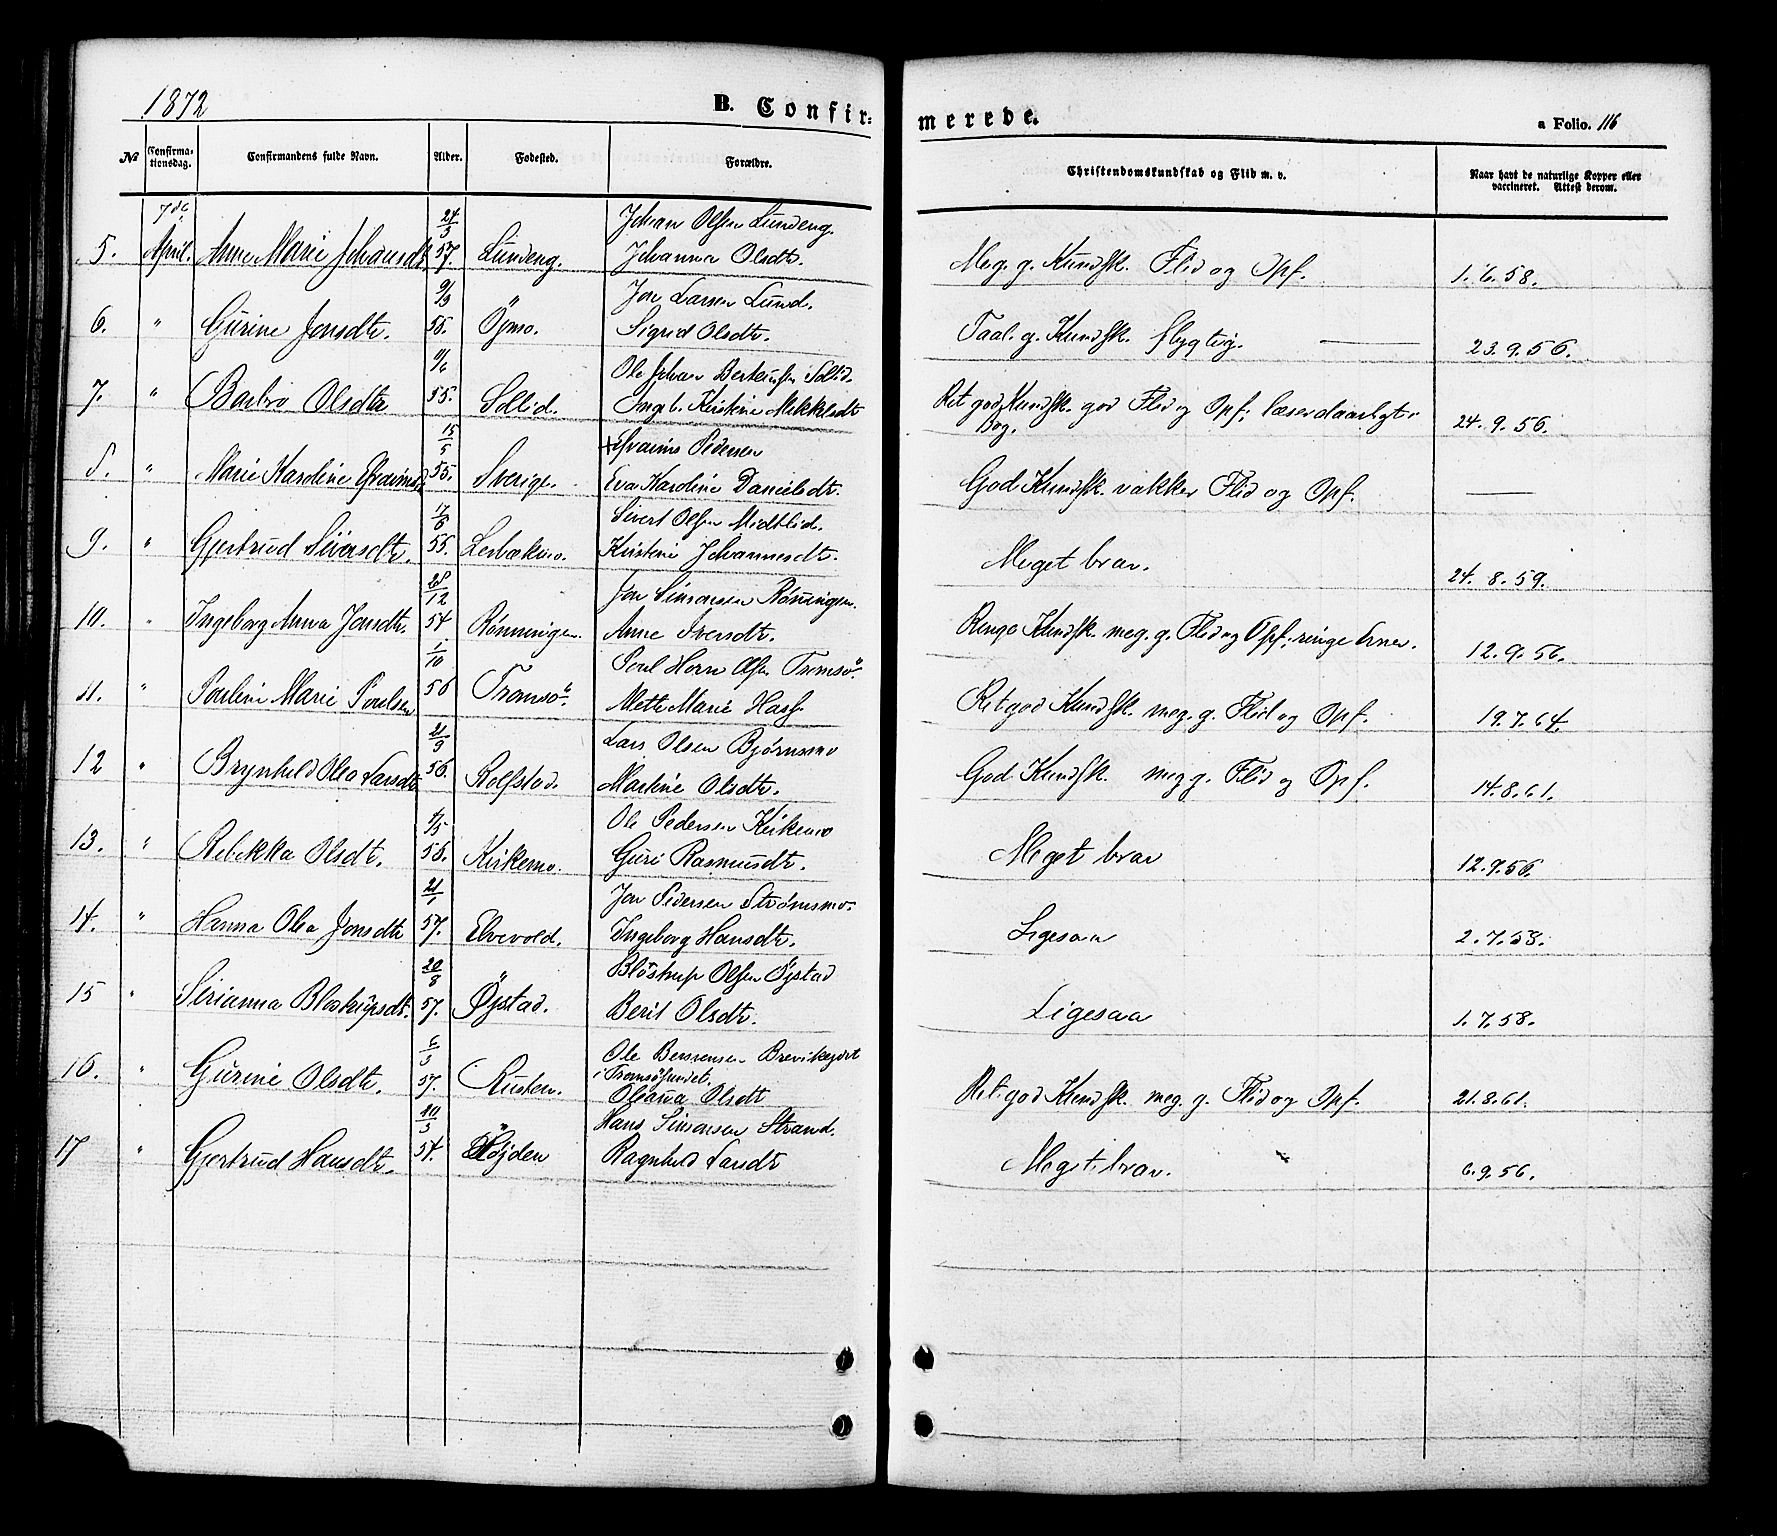 1872 B. Confirmerede. a Folio. 116
No Confirmationsdag. Confirmandens fulde Navn. Alder. Fødested. Forældre. Christendomskundskab og Flid m. v. Naar havt de naturlige Kopper eller vaccineret. Attest derom.
7de 24/5 Johan Olsen Lundeng.
5. April. Anne Marie Johansdt. 57. Lundeng. Johanna Olsdtr. Meg. g. Kundsk. Flid og Opf. 1.6.58.
9/9 Jon Larsen Lund.
6. " Gurine Jonsdtr. 55. Øjmo. Sigrid Olsdtr. Taal. g. Kundsk. flygtig. 23.9.56.
11/6 Ole Johan Berteusen Solid.
7. " Barbro Olsdtr 55. Sollid. Ingeb. Kirstine Mikkelsdt Ret god Kundsk. god Flid og Opf; læser daarligt i Bog. 24.9.56.
15/5 + Efraims Pedersen
8. " Marie Karoline Efraimsd 55. Sverige. Eva Karoline Danielsdtr. God Kundsk. vakker Flid og Opf. —
17/6 Sivert Olsen Midtlid.
9. " Gjertrud Siversdtr. 55. Lerbækmo. Kirstine Johannesdtr. Meget brav. 24.8.59.
28/12 Jon Simonsen Rønningen.
10. " Ingeborg Anna Jonsdtr. 54 Rønningen. Anne Iversdtr. Ringe Kundsk. meg. g. Flid og Opf; ringe Evner. 12.9.56.
1/10 Poul Horn Olsen Tromsø.
11. " Pauline Marie Poulsen 56 Tromsø. Mette Marie Hass. Ret god Kundsk. meg. g. Flid og Opf. 19.7.64.
21/9 Lars Olsen Bjørnsmo
12 " Brynhild Olea Larsdtr 56. Rolfstad. Martine Olsdtr. God Kundsk. meg g. Flid og Opf. 14.8.61.
4/5 Ole Pedersen Kirkemo
13. " Rebekka Olsdtr. 56. Kirkemo. Guri Rasmusdtr. Meget brav 12.9.56.
21/1 Jon Pedersen Strømsmo.
14. " Hanna Olea Jonsdtr 57. Elvevold. Ingeborg Hansdtr. Ligesaa 2.7.58.
20/8 Bløstrup Olsen Øjstad
15 " Serianna Bløstrupsdt. 57. Øjstad. Berit Olsdtr. Ligesaa 1.7.58.
6/3 Ole Berntsen Brevikejdet
i Tromsøsundet.
16. " Gurine Olsdtr. 57. Rusten. Oleana Olsdt Ret god Kundsk. meg. g. Flid og Opf. 21.8.61.
10/5 Hans Simonsen Strand.
17 " Gjertrud Hansdtr. 54. Højden Ragnhild Larsdt Meget brav. 6.9.56.